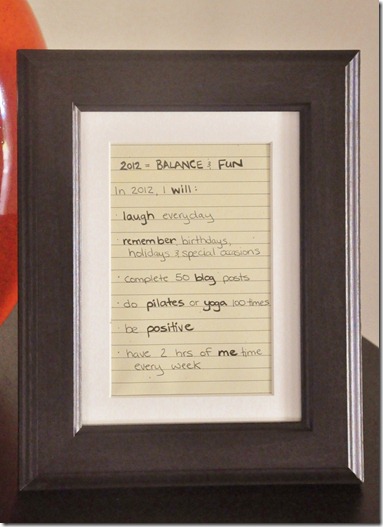 2012 = BALANCE & FUN
In 2012, I will:
· laugh everyday
· remember birthdays,
holidays & special occasions
· complete 50 blog posts
· do pilates or yoga 100 times
· be positive
· have 2 hrs of me time
every week